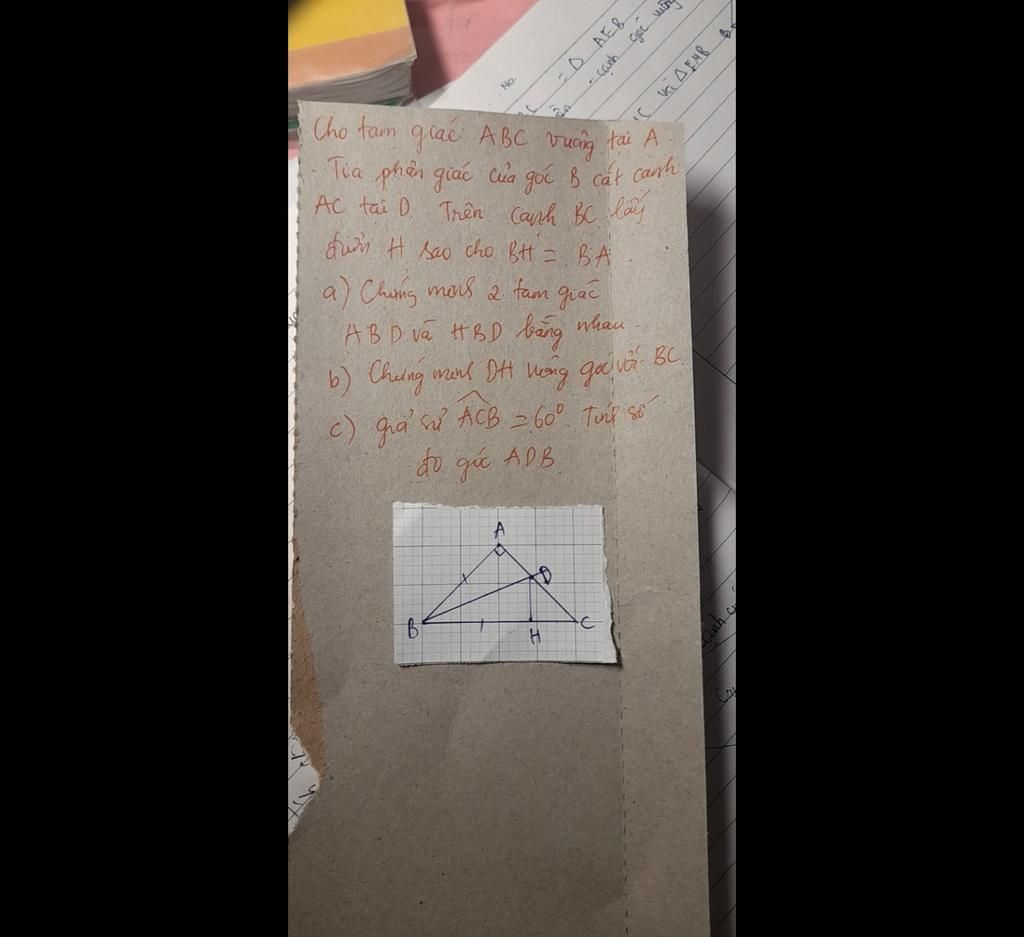 No.
= Δ AEB
- cạnh góc vuông
và Δ EMB
Cho tam giác ABC vuông tại A.
Tia phân giác của góc B cắt cạnh
AC tại D. Trên cạnh BC lấy
điểm H sao cho BH = BA.
a) Chứng minh 2 tam giác
ABD và HBD bằng nhau.
b) Chứng minh DH vuông góc với BC.
c) giả sử ACB = 60°. Tính số
đo góc ADB.
A
D
B
H
C